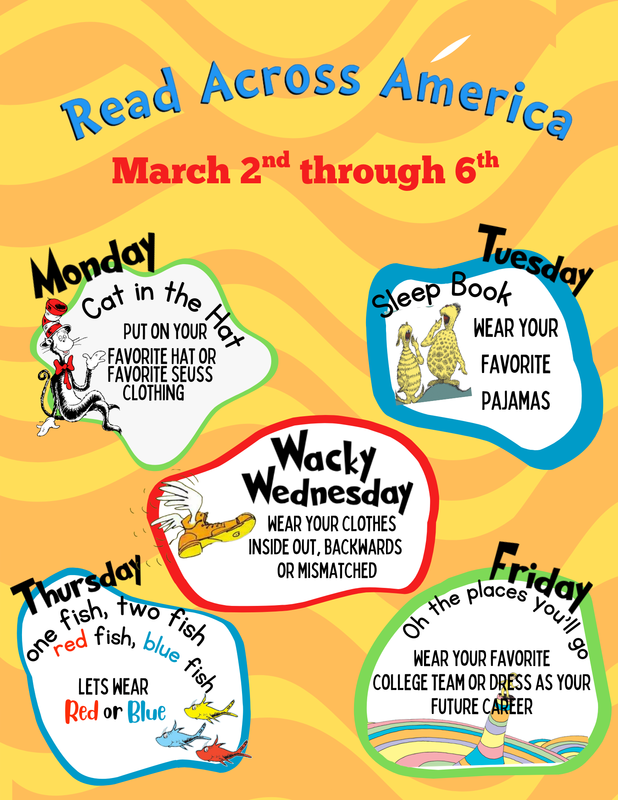 Read Across America
March 2nd through 6th
Monday
Cat in the Hat
PUT ON YOUR
FAVORITE HAT OR
FAVORITE SEUSS
CLOTHING
Tuesday
Sleep Book
WEAR YOUR
FAVORITE
PAJAMAS
Wacky
Wednesday
WEAR YOUR CLOTHES
INSIDE OUT, BACKWARDS
OR MISMATCHED
Thursday
one fish, two fish
red fish, blue fish
LETS WEAR
Red or Blue
Friday
Oh the places you'll go
WEAR YOUR FAVORITE
COLLEGE TEAM OR DRESS AS YOUR
FUTURE CAREER